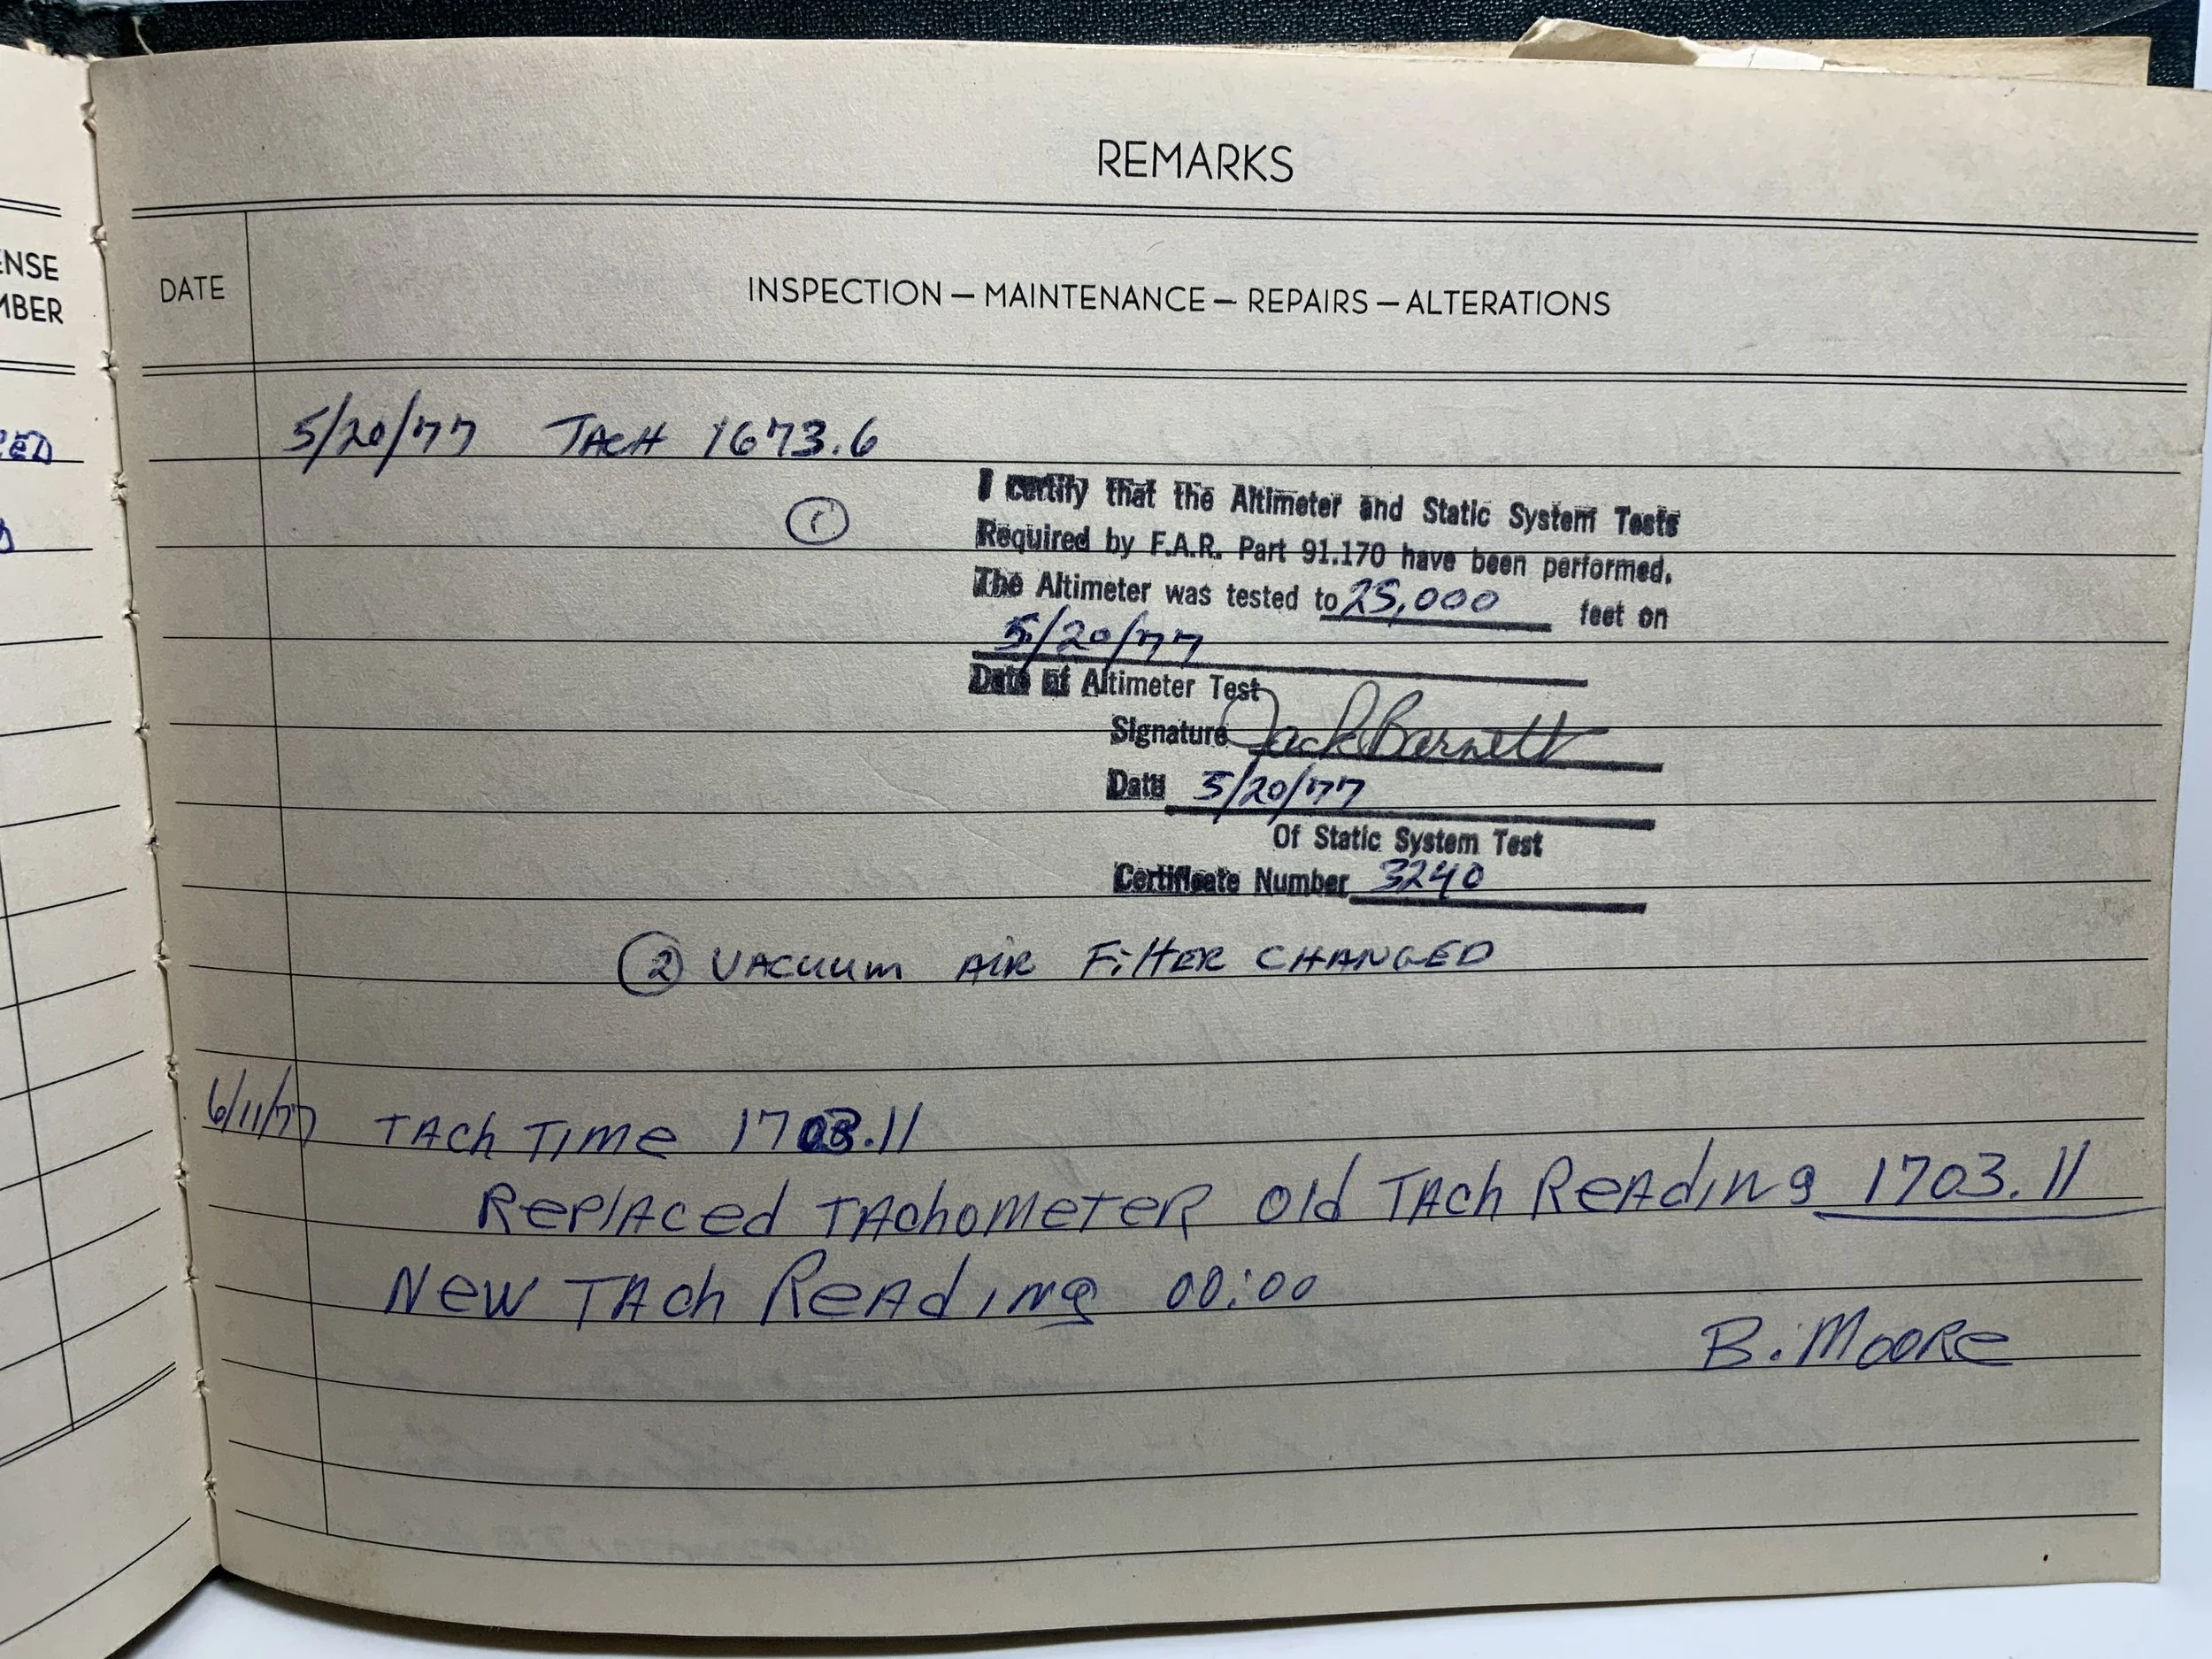 REMARKS
ENSE
MBER
DATE
INSPECTION — MAINTENANCE — REPAIRS — ALTERATIONS
5/20/77 TACH 1673.6
①
I certify that the Altimeter and Static System Tests
Required by F.A.R. Part 91.170 have been performed.
The Altimeter was tested to 25,000 feet on
5/20/77
Date of Altimeter Test
Signature Jack Barnett
Date 5/20/77
Of Static System Test
Certificate Number 3240
② VACUUM AIR FilTER CHANGED
6/11/77 TACh TIMe 1703.11
RePlACed TAChOMeTeR Old TACh ReAdINg 1703.11
New TACh ReAdINg 00:00
B. MOORe